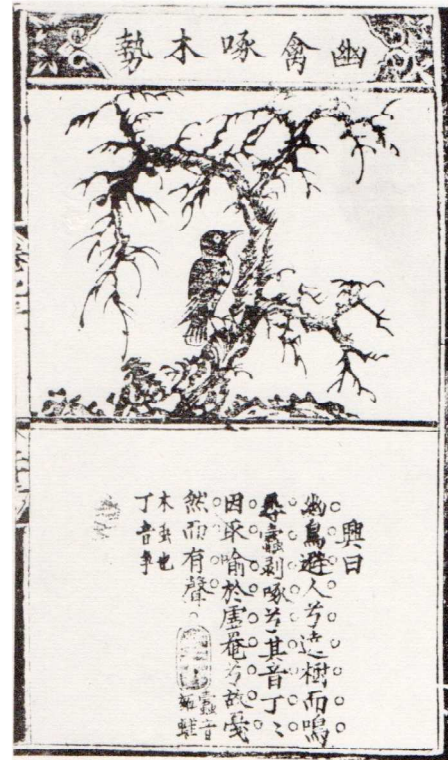 幽禽啄木勢
興曰
幽鳥避人兮遶樹而鳴
尋蠹剥啄兮其音丁〻
因取喻於虛罨兮故戞
然而有聲
蠹音
木虫也
丁音争